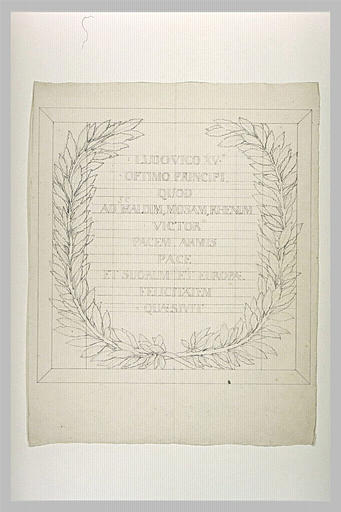 LUDOVICO XV.
OPTIMO PRINCIPI,
QUOD
AD SCALDIM, MOSAM, RHENUM
VICTOR
PACEM, ARMIS
PACE
ET SUORUM ET EUROPÆ
FELICITATEM
QUÆSIVIT